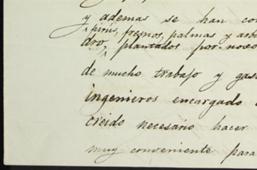 y ademas se han co
pirús, fresnos, palmas y arb
dro, plantados por noso
de mucho trabajo y gas
ingenieros encargado
creido necesario hacer
muy conveniente para